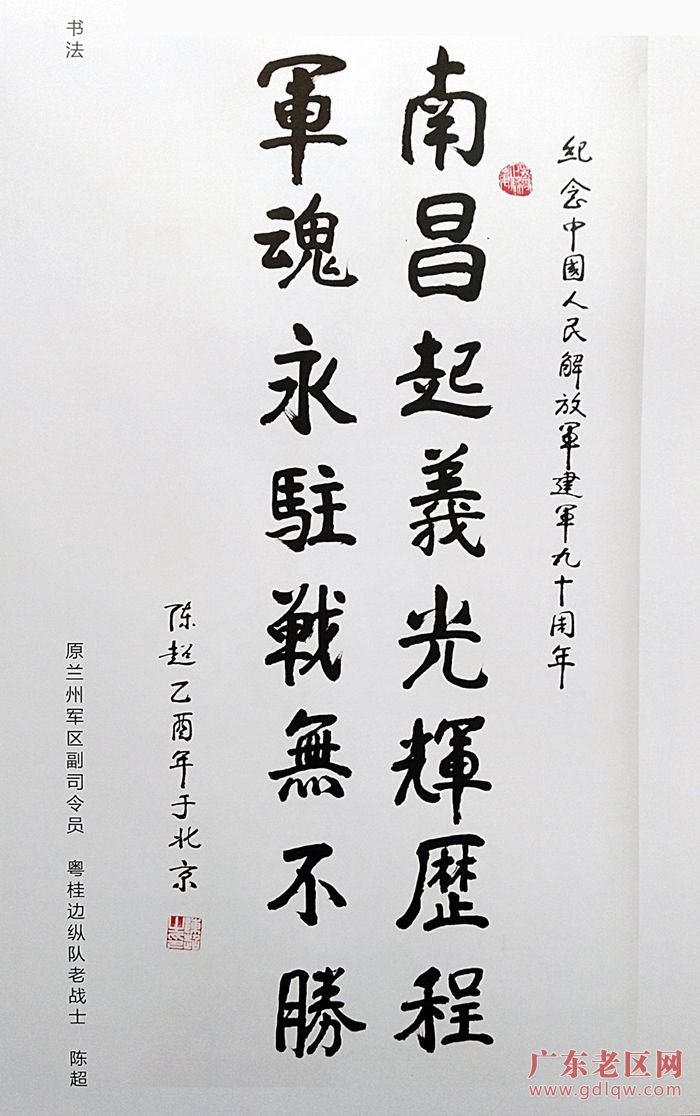 书法
紀念中國人民解放軍建軍九十周年
南昌起義光輝歷程
軍魂永駐戰無不勝
陈超乙酉年于北京
原兰州军区副司令员 粤桂边纵队老战士 陈超
广东老区网
www.gdlqw.com